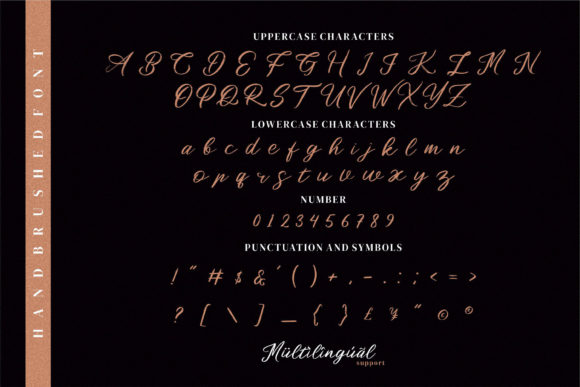 HANDBRUSHED FONT
UPPERCASE CHARACTERS
A B C D E F G H I J K L M N
O P Q R S T U V W X Y Z
LOWERCASE CHARACTERS
a b c d e f g h i j k l m n
o p q r s t u v w x y z
NUMBER
0 1 2 3 4 5 6 7 8 9
PUNCTUATION AND SYMBOLS
! " # $ & ' ( ) + , - . : ; < = >
? [ \ ] _ { } £ ¥ " © ®
Múltílingúãl
support